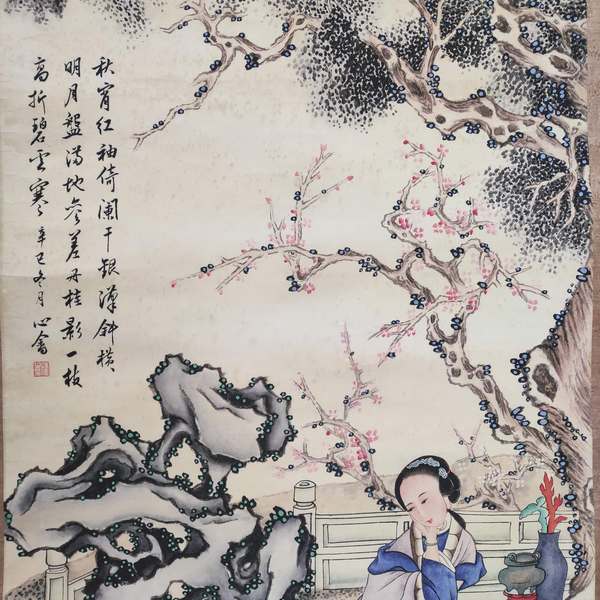 秋宵红袖倚阑干银汉斜横
明月盘满地参差丹桂影一枝
高折碧云寒 辛巳冬月 心畬